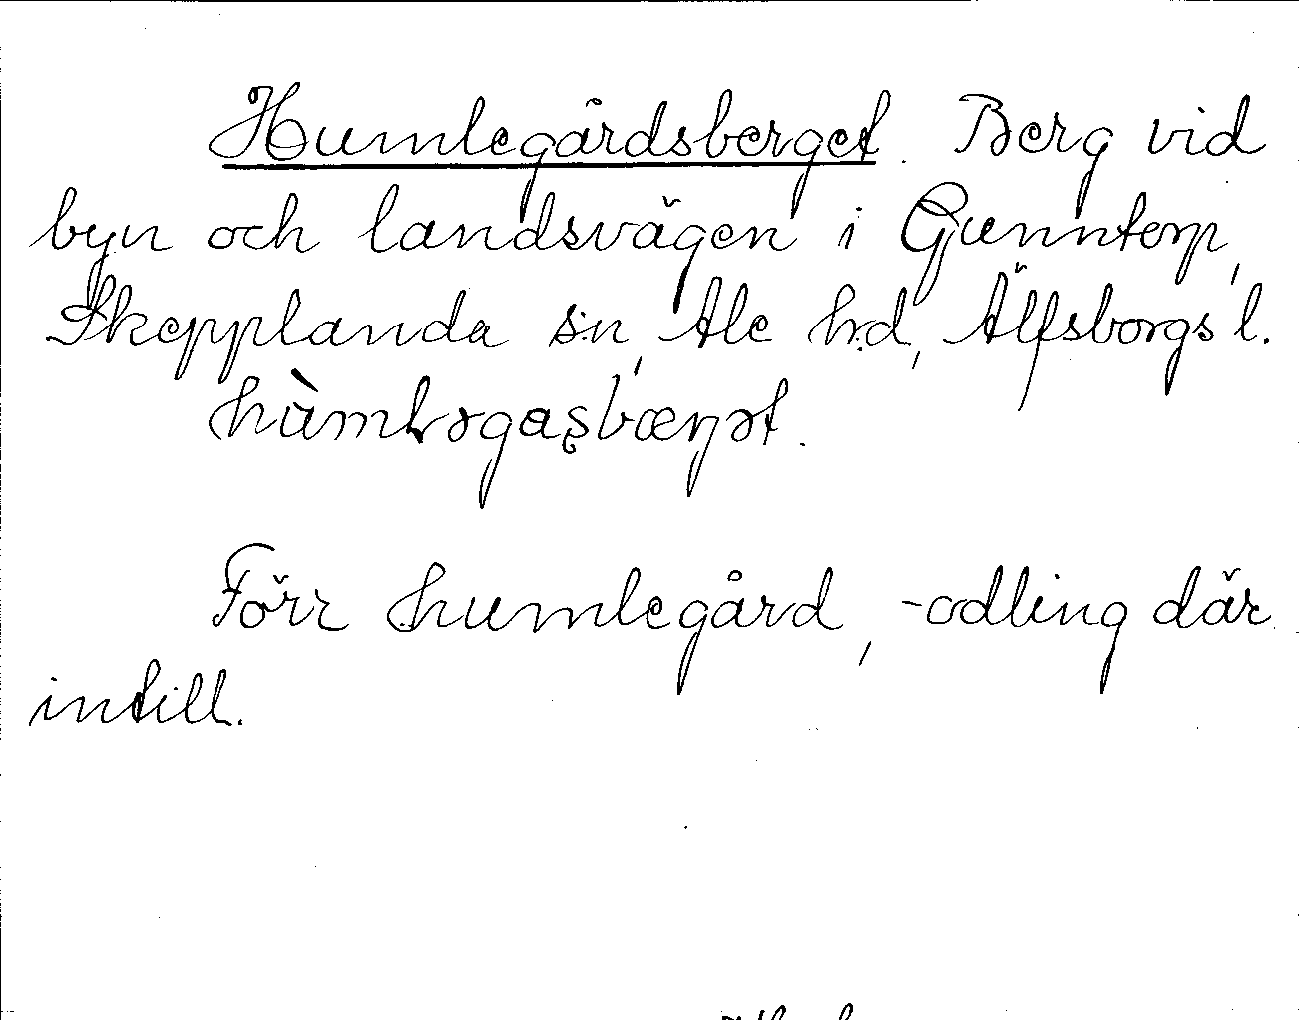 Humlegårdsberget. Berg vid
byn och landsvägen i Gunntorp,
Skepplanda s:n, Ale h:d, Älfsborgs l.
Förr humlegård, -odling där
intill.